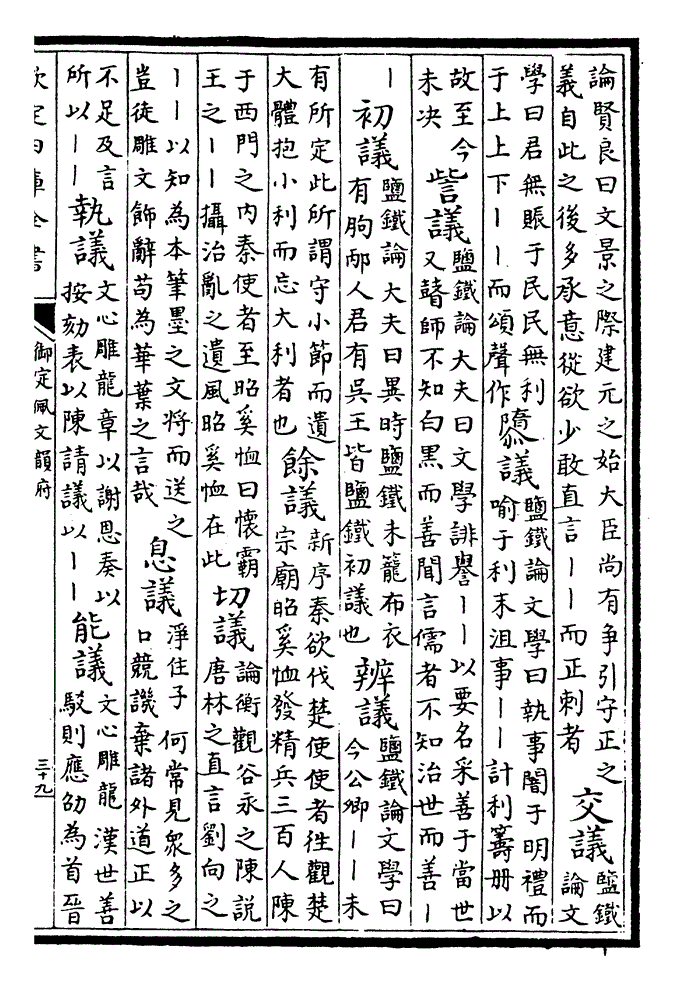 論賢良曰文景之際建元之始大臣尚有争引守正之
義自此之後多承意從欲少敢直言丨丨而正刺者
交議
鹽鐵
論文
學曰君無賑于民民無利
于上上下丨丨而頌聲作
隳議
鹽鐵論文學曰執事闇于明禮而
喻于利末沮事丨丨計利籌册以
故至今
未决
訾議
鹽鐵論大夫曰文學誹譽丨丨以要名采善于當世
又瞽師不知白黒而善聞言儒者不知治世而善丨
丨
初議
鹽鐵論大夫曰異時鹽鐵未籠布衣
有朐邴人君有吳王皆鹽鐵初議也
辨議
鹽鐵論文學曰
今公卿丨丨未
有所定此所謂守小節而遺
大體抱小利而忘大利者也
餘議
新序秦欲伐楚使使者徃觀楚
宗廟昭奚恤發精兵三百人陳
于西門之内秦使者至昭奚恤曰懷霸
王之丨丨攝治亂之遺風昭奚恤在此
切議
論衡觀谷永之陳說
唐林之直言劉向之
丨丨以知為本筆墨之文将而送之
豈徒雕文飾辭苟為華葉之言哉
息議
淨住子何常見衆多之
口競譏棄諸外道正以
不足及言
所以丨丨
執議
文心雕龍章以謝恩奏以
按劾表以陳請議以丨丨
能議
文心雕龍漢世善
駁則應劭為首晉
欽定四庫全書
御定佩文韻府
三十九